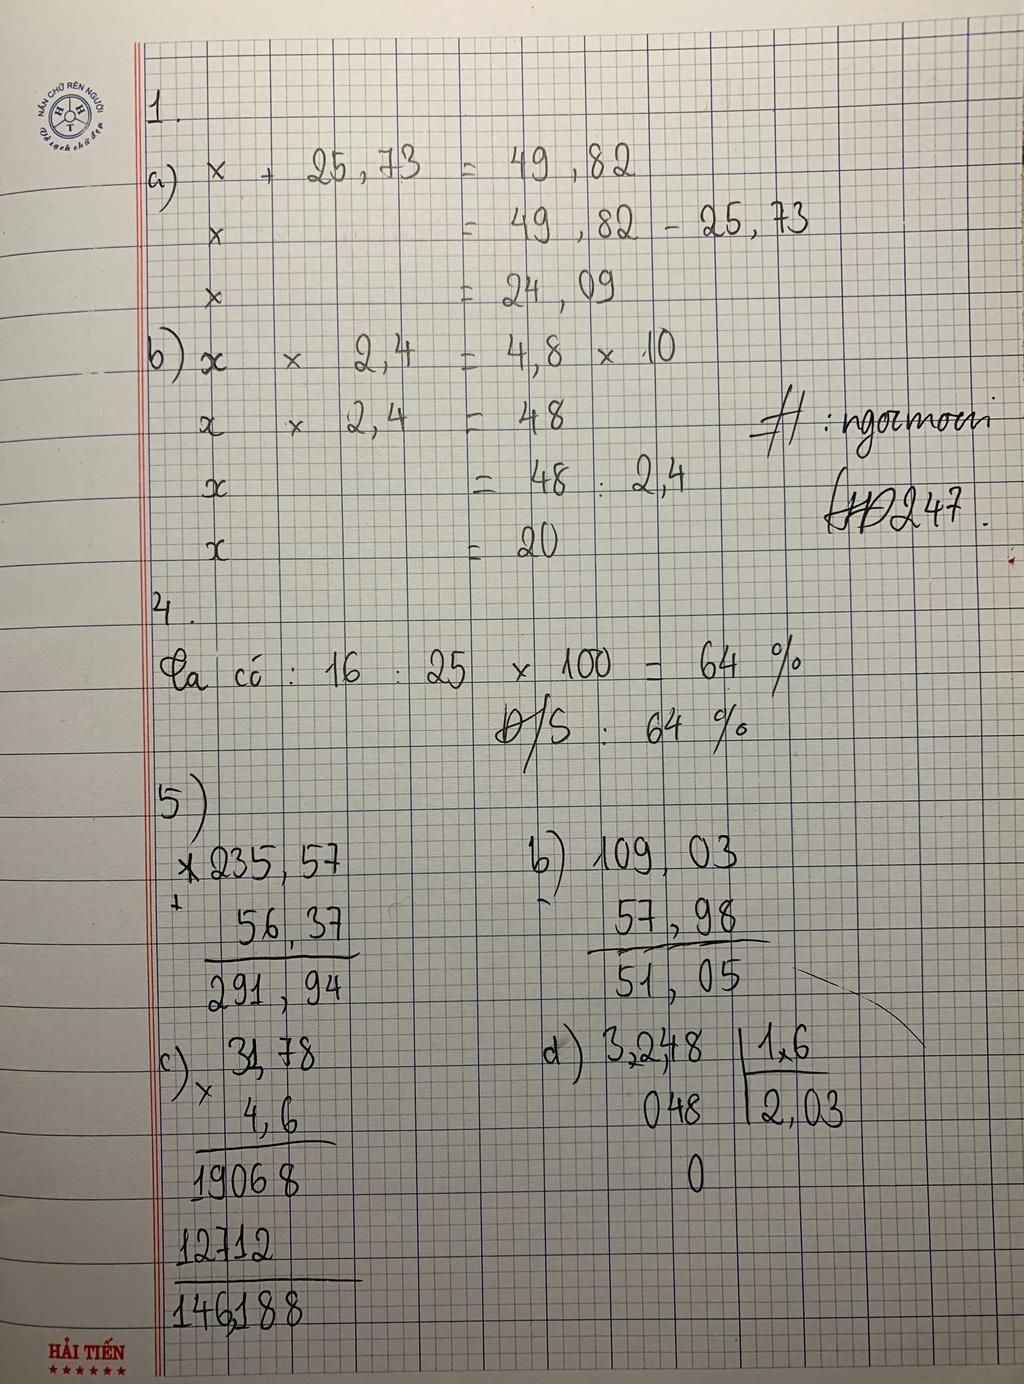 NẮN CHỮ RÈN NGƯỜI
H H T
Vở sạch chữ đẹp
1.
a) x + 25,73 = 49,82
x = 49,82 - 25,73
x = 24,09
b) x × 2,4 = 4,8 × 10
x × 2,4 = 48
x = 48 : 2,4
x = 20
# : ngocmocni
247.
4.
Ta có : 16 : 25 × 100 = 64 %
Đ/S : 64 %
5)
235,57
+
56,37
291,94
b) 109,03
-
57,98
51,05
c) 31,78
×
4,6
19068
12712
146,188
d) 3,2,48 1,6
048 2,03
0
HẢI TIẾN